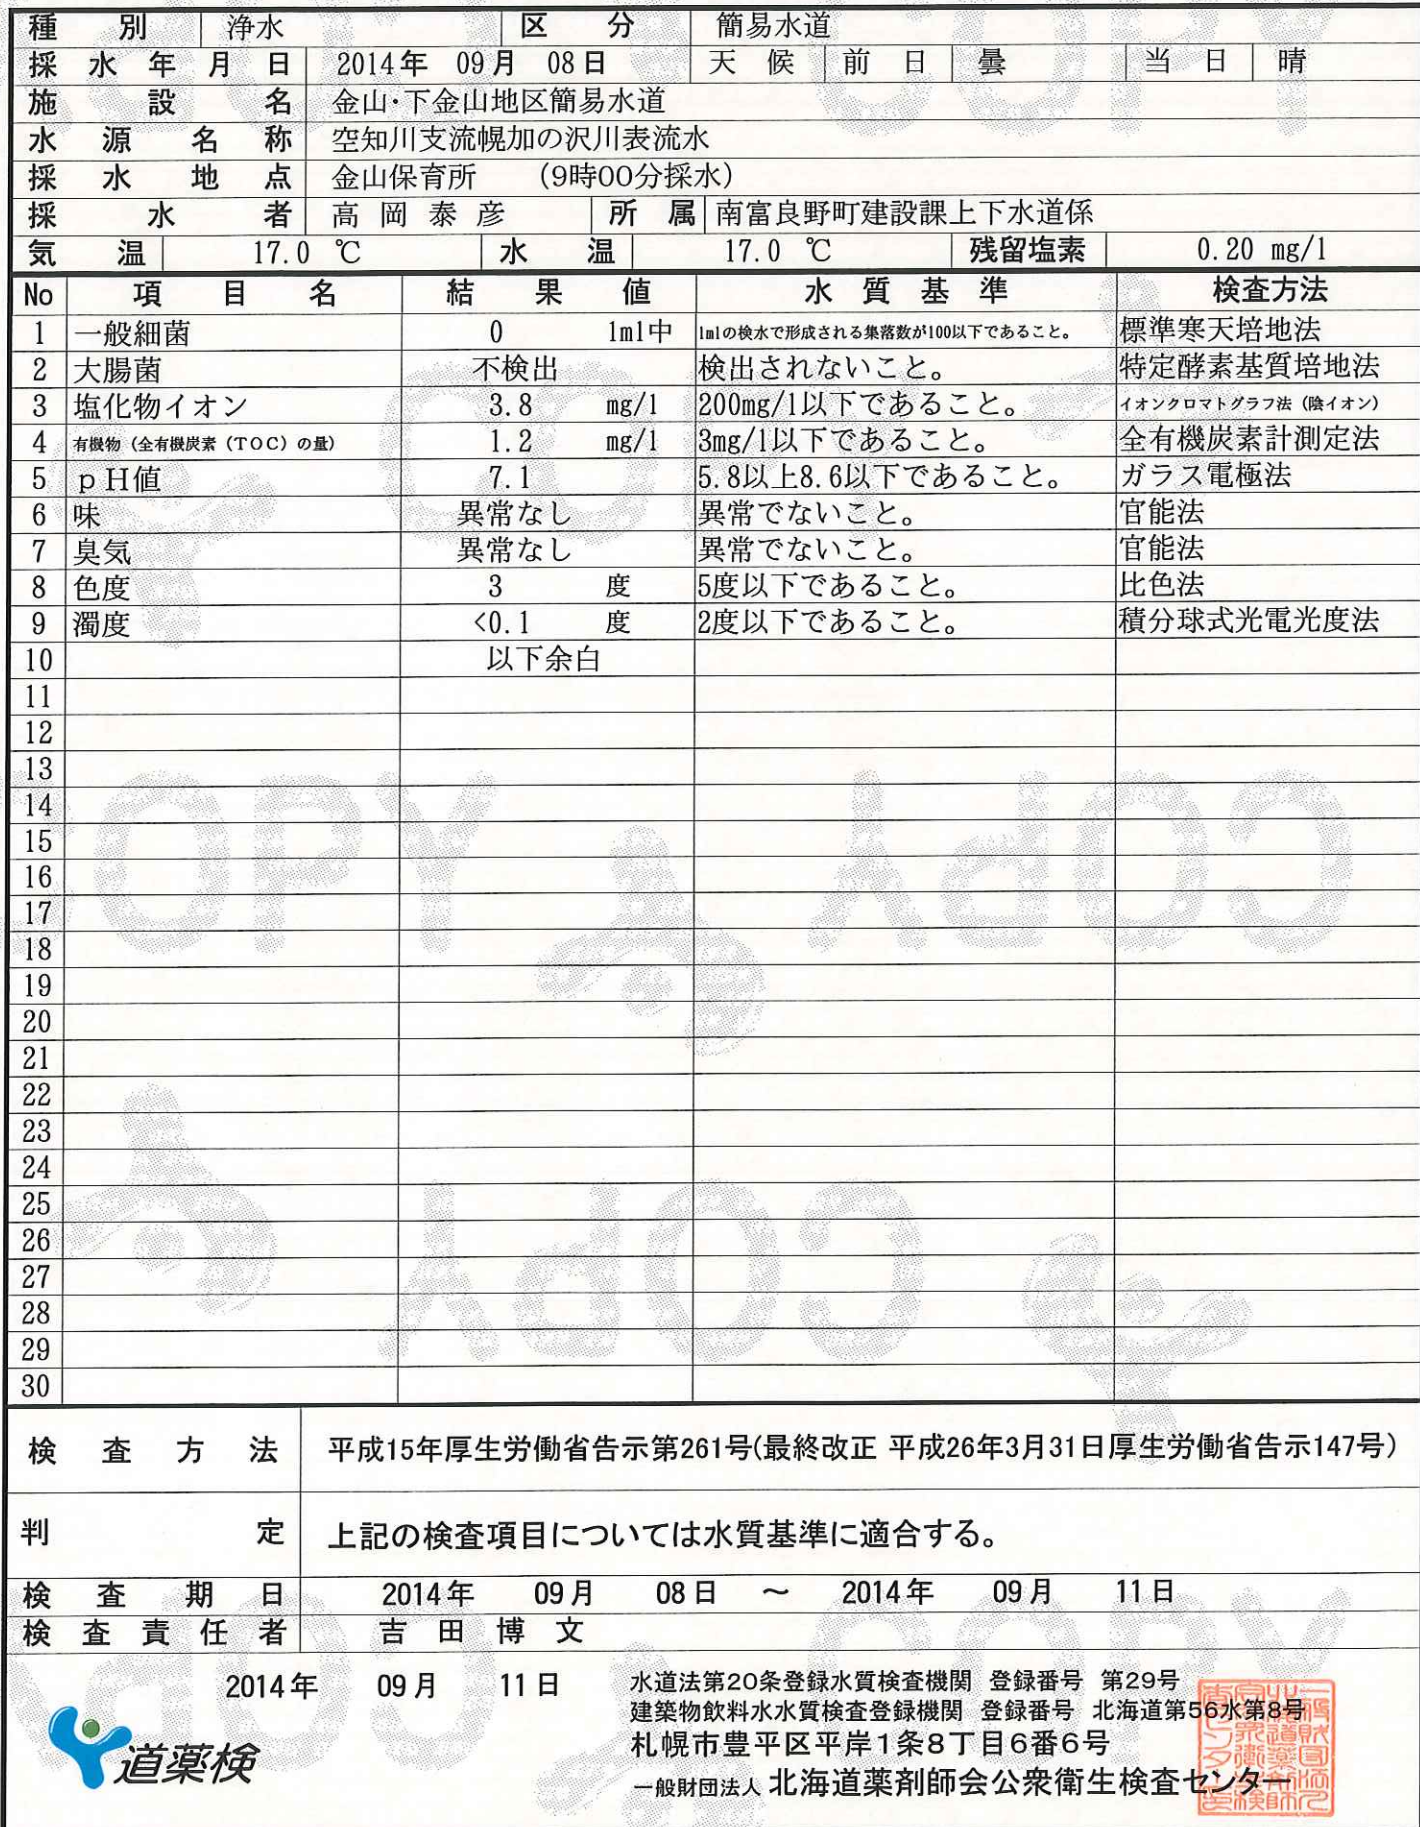 種別 浄水 区分 簡易水道
採水年月日 2014年 09月 08日 天候 前日 曇 当日 晴
施設名 金山・下金山地区簡易水道
水源名称 空知川支流幌加の沢川表流水
採水地点 金山保育所 （9時00分採水）
採水者 高岡泰彦 所属 南富良野町建設課上下水道係
気温 17.0 ℃ 水温 17.0 ℃ 残留塩素 0.20 mg/l
No 項目名 結果値 水質基準 検査方法
1 一般細菌 0 1ml中 1mlの検水で形成される集落数が100以下であること。 標準寒天培地法
2 大腸菌 不検出 検出されないこと。 特定酵素基質培地法
3 塩化物イオン 3.8 mg/l 200mg/l以下であること。 イオンクロマトグラフ法（陰イオン）
4 有機物（全有機炭素（TOC）の量） 1.2 mg/l 3mg/l以下であること。 全有機炭素計測定法
5 pH値 7.1 5.8以上8.6以下であること。 ガラス電極法
6 味 異常なし 異常でないこと。 官能法
7 臭気 異常なし 異常でないこと。 官能法
8 色度 3 度 5度以下であること。 比色法
9 濁度 <0.1 度 2度以下であること。 積分球式光電光度法
10 以下余白
11
12
13
14
15
16
17
18
19
20
21
22
23
24
25
26
27
28
29
30
検査方法 平成15年厚生労働省告示第261号(最終改正 平成26年3月31日厚生労働省告示147号)
判定 上記の検査項目については水質基準に適合する。
検査期日 2014年 09月 08日 ～ 2014年 09月 11日
検査責任者 吉田博文
2014年 09月 11日
水道法第20条登録水質検査機関 登録番号 第29号
建築物飲料水水質検査登録機関 登録番号 北海道第56水第8号
札幌市豊平区平岸1条8丁目6番6号
一般財団法人 北海道薬剤師会公衆衛生検査センター
道薬検
COPY
COPY
COPY
COPY
COPY
COPY
COPY
COPY